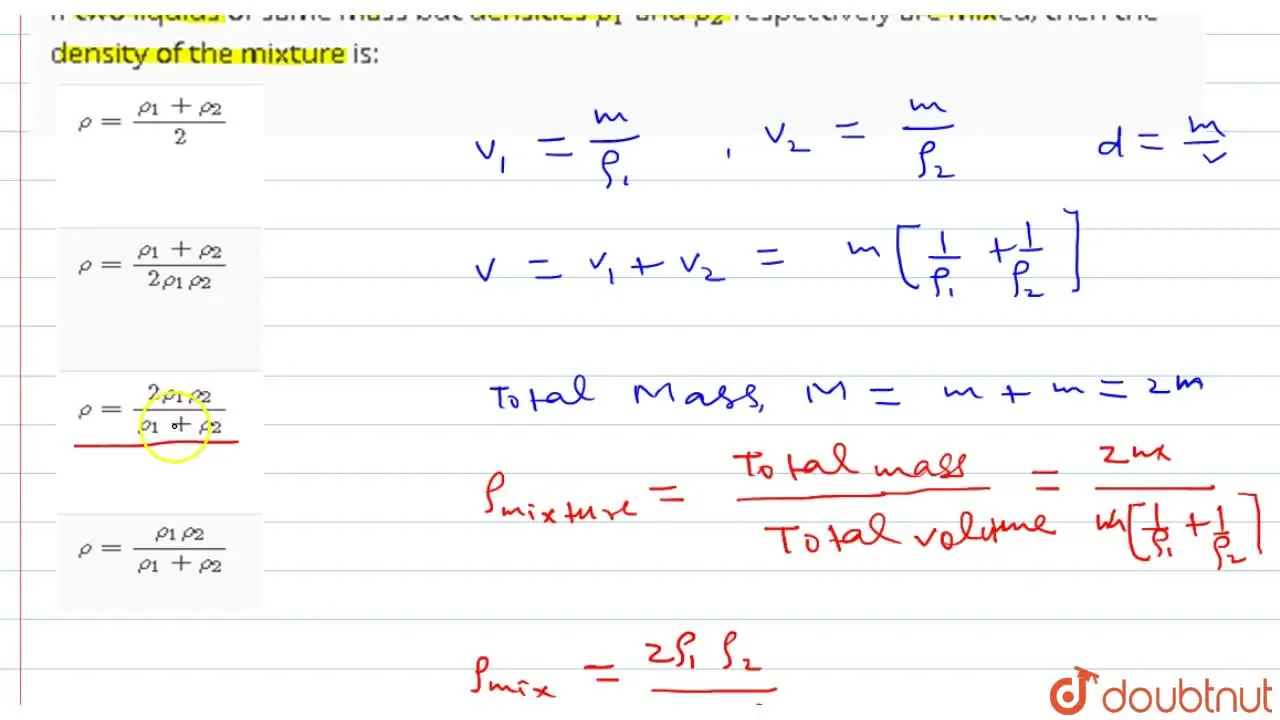 If two liquids of same mass but densities ρ1 and ρ2 respectively are mixed, then the
density of the mixture is:
ρ = (ρ1 + ρ2)/2
ρ = (ρ1 + ρ2)/(2ρ1ρ2)
ρ = (2ρ1ρ2)/(ρ1 + ρ2)
ρ = (ρ1ρ2)/(ρ1 + ρ2)
v1 = m/ρ1 , v2 = m/ρ2 d = m/v
v = v1 + v2 = m[1/ρ1 + 1/ρ2]
Total Mass, M = m + m = 2m
ρmixture = Total mass/Total volume = 2m/m[1/ρ1 + 1/ρ2]
ρmix = 2ρ1 ρ2
doubtnut